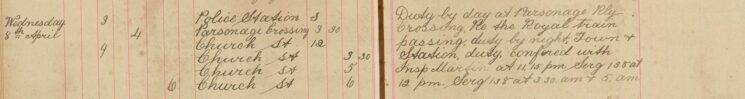 Wednesday 3 Police Station 3
8th April 4 Parsonage Crossing 3 30
9 Church St 12
Church St 3 30
Church St 5
6 Church St 6
Duty by day at Parsonage Rly
Crossing, Re the Royal train
passing, duty by night, Town &
Station, duty, confered with
Insp Martin at 11.15 pm Serg 138 at
12 pm. Serg 138 at 3.30 am & 5. am